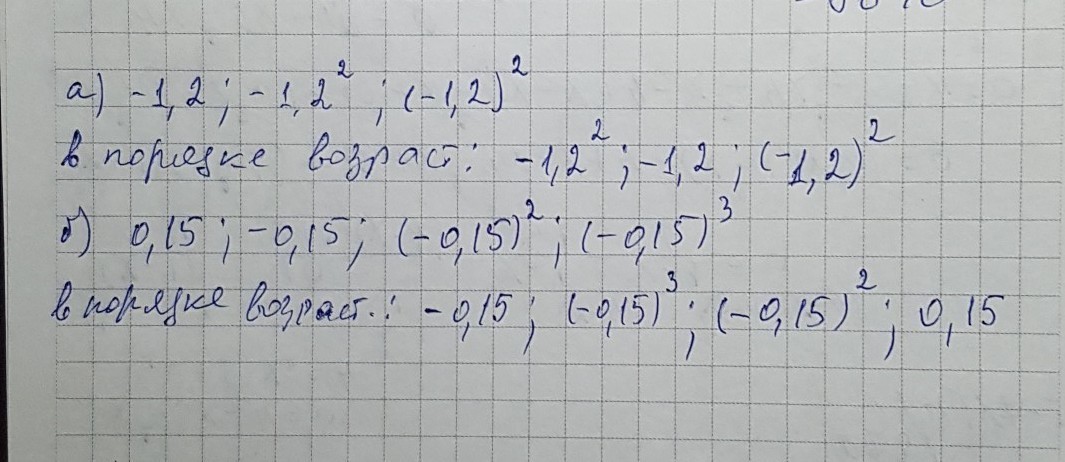 а) -1,2 ; -1,2² ; (-1,2)²
в порядке возраст: -1,2² ; -1,2 ; (-1,2)²
б) 0,15 ; -0,15 ; (-0,15)² ; (-0,15)³
в порядке возраст.: -0,15 ; (-0,15)³ ; (-0,15)² ; 0,15